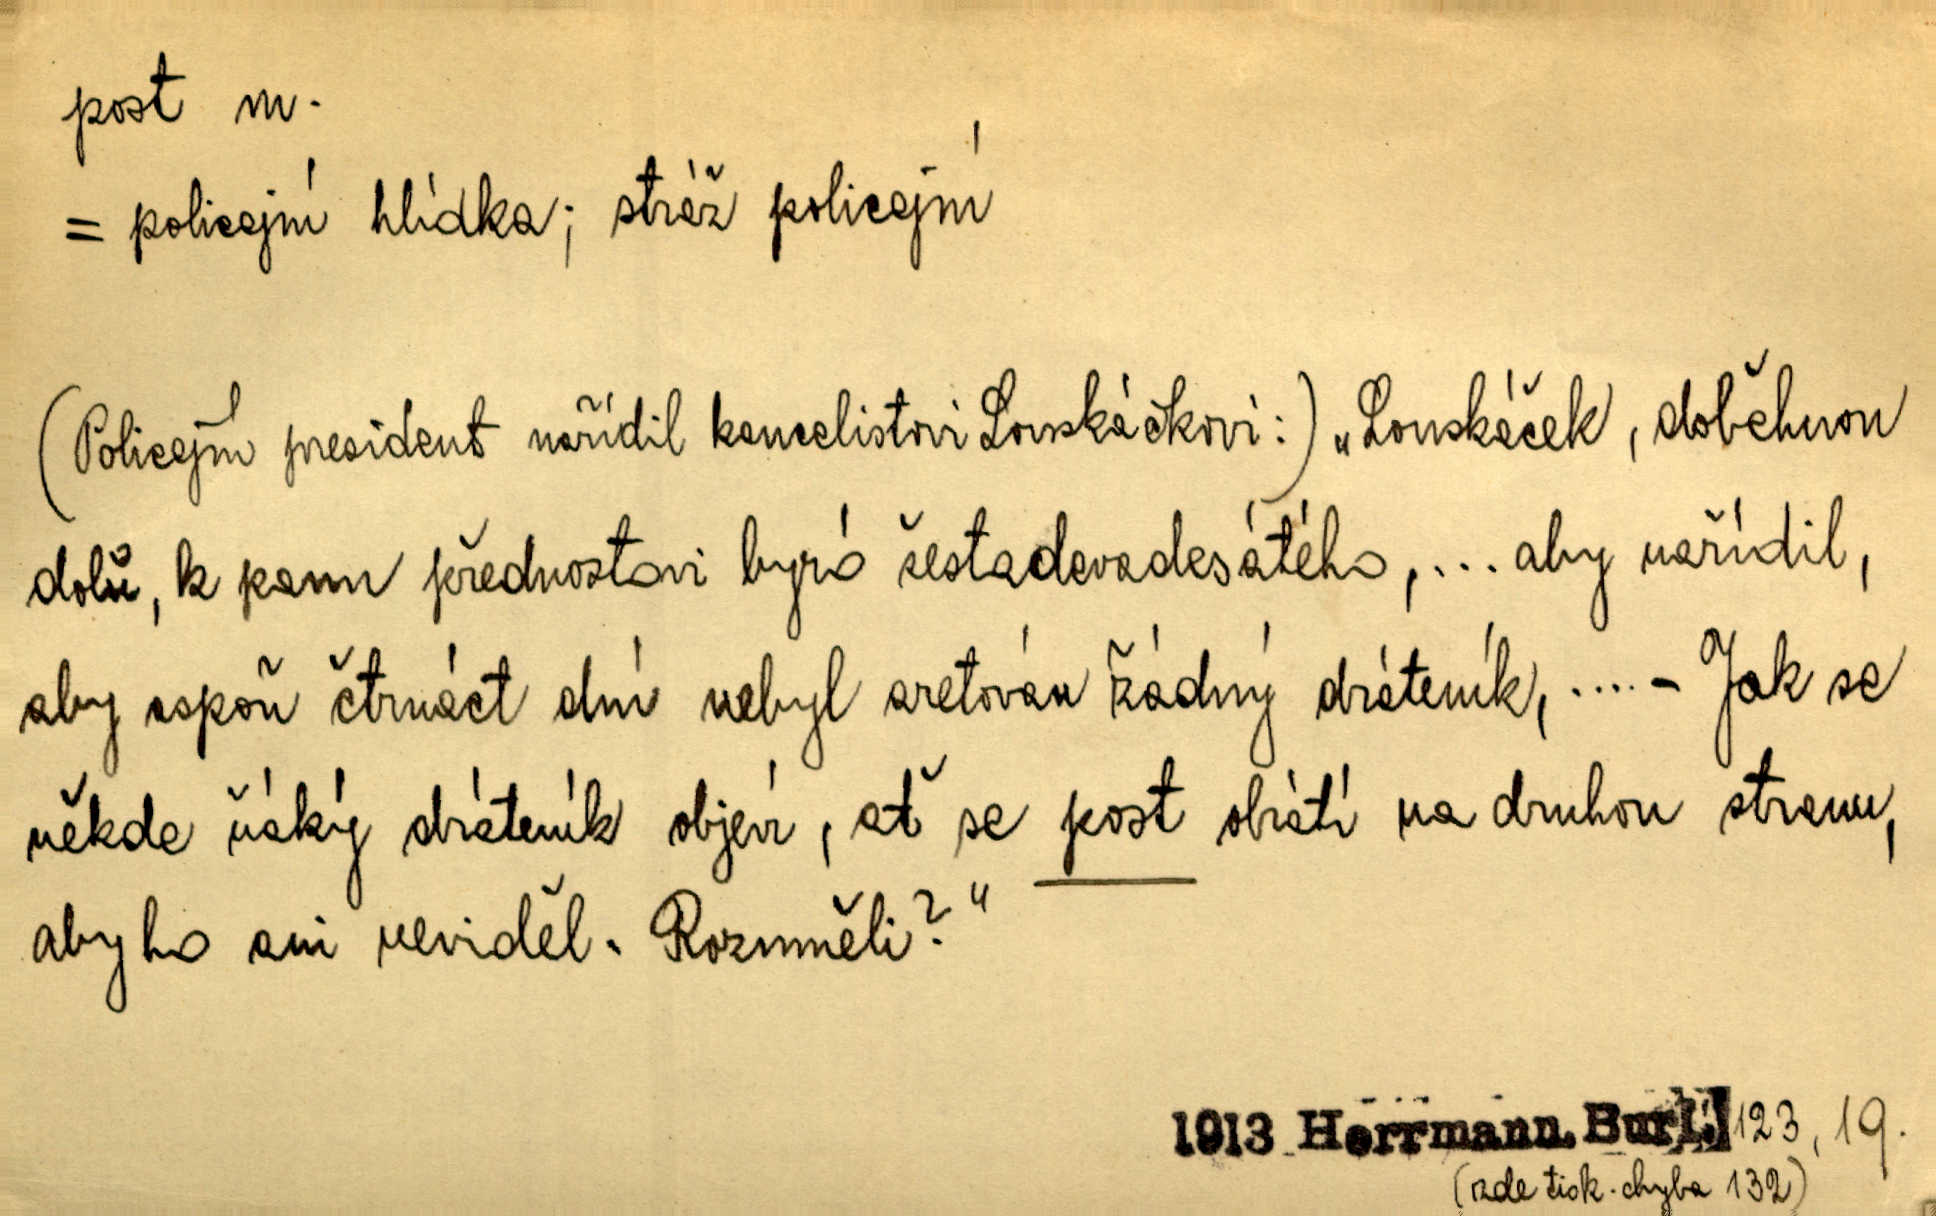 post m.
= policejní hlídka; stráž policejní
(Policejní president nařídil kancelistovi Louskáčkovi:) „Louskáček, doběhnou
dolů, k panu přednostovi byró šestadevadesátého, ... aby nařídil,
aby aspoň čtrnáct dní nebyl aretován žádný dráteník, .... - Jak se
někde ňáký dráteník objeví, ať se post obrátí na druhou stranu,
aby ho ani neviděl. Rozuměli?“
1913 Herrmann, Burl. 123, 19.
(zde tisk. chyba 132)